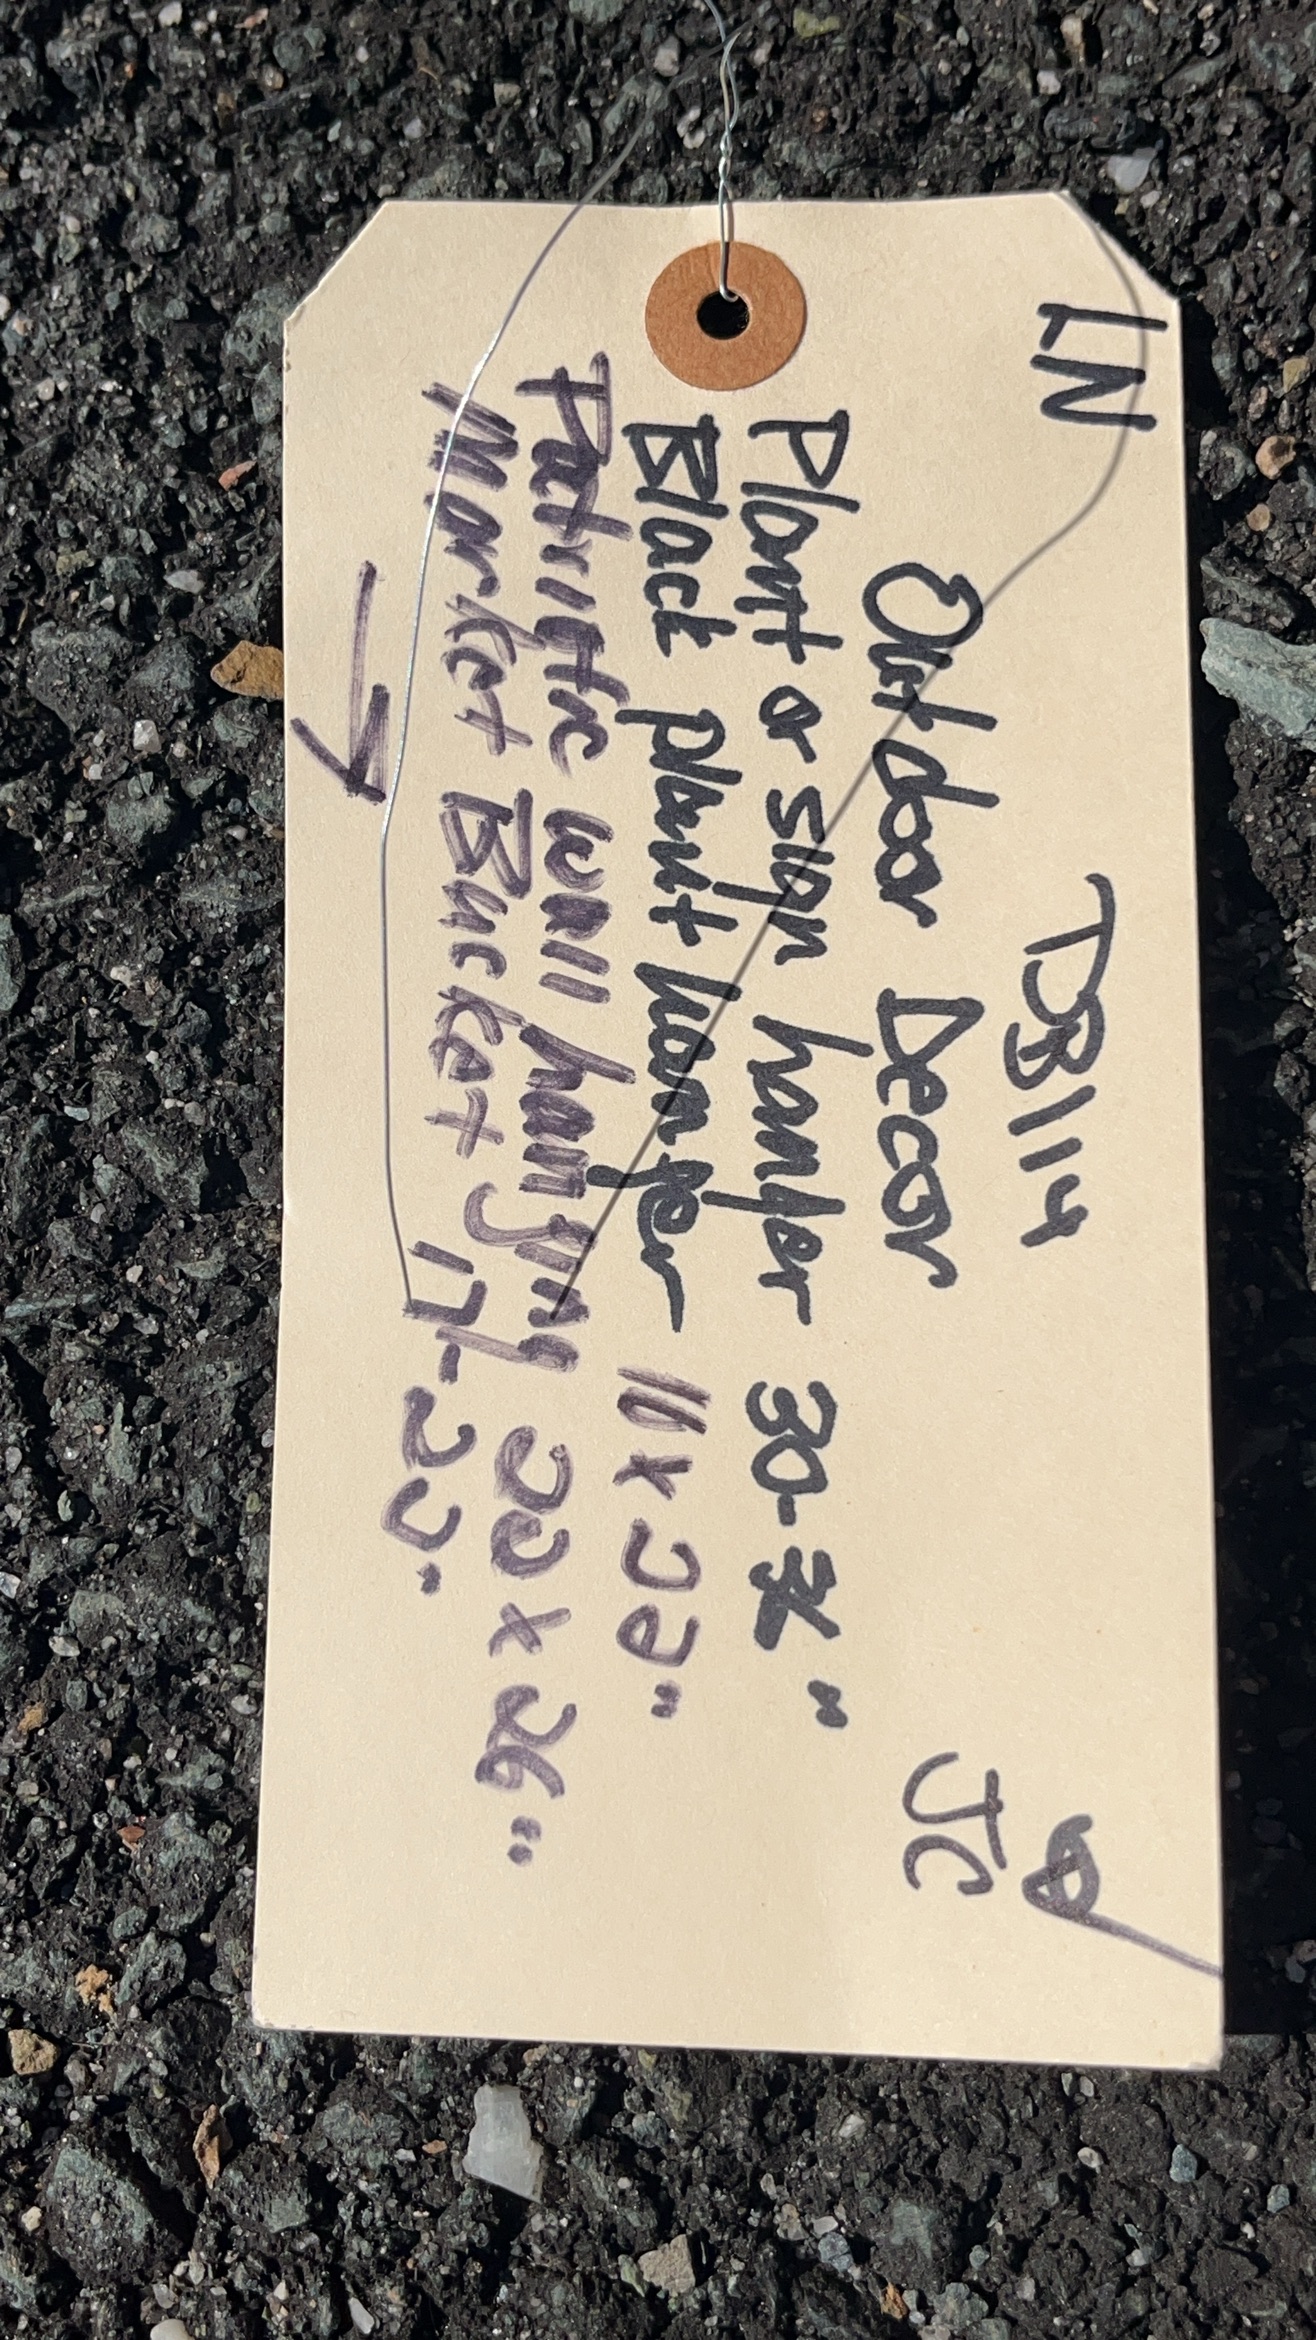 LN TB114
Outdoor Decor JC
Plant or sign hanger 30-36"
Black plant hanger 11x22"
Patriotic wall hanging 22x26"
Market Bucket 17-23"